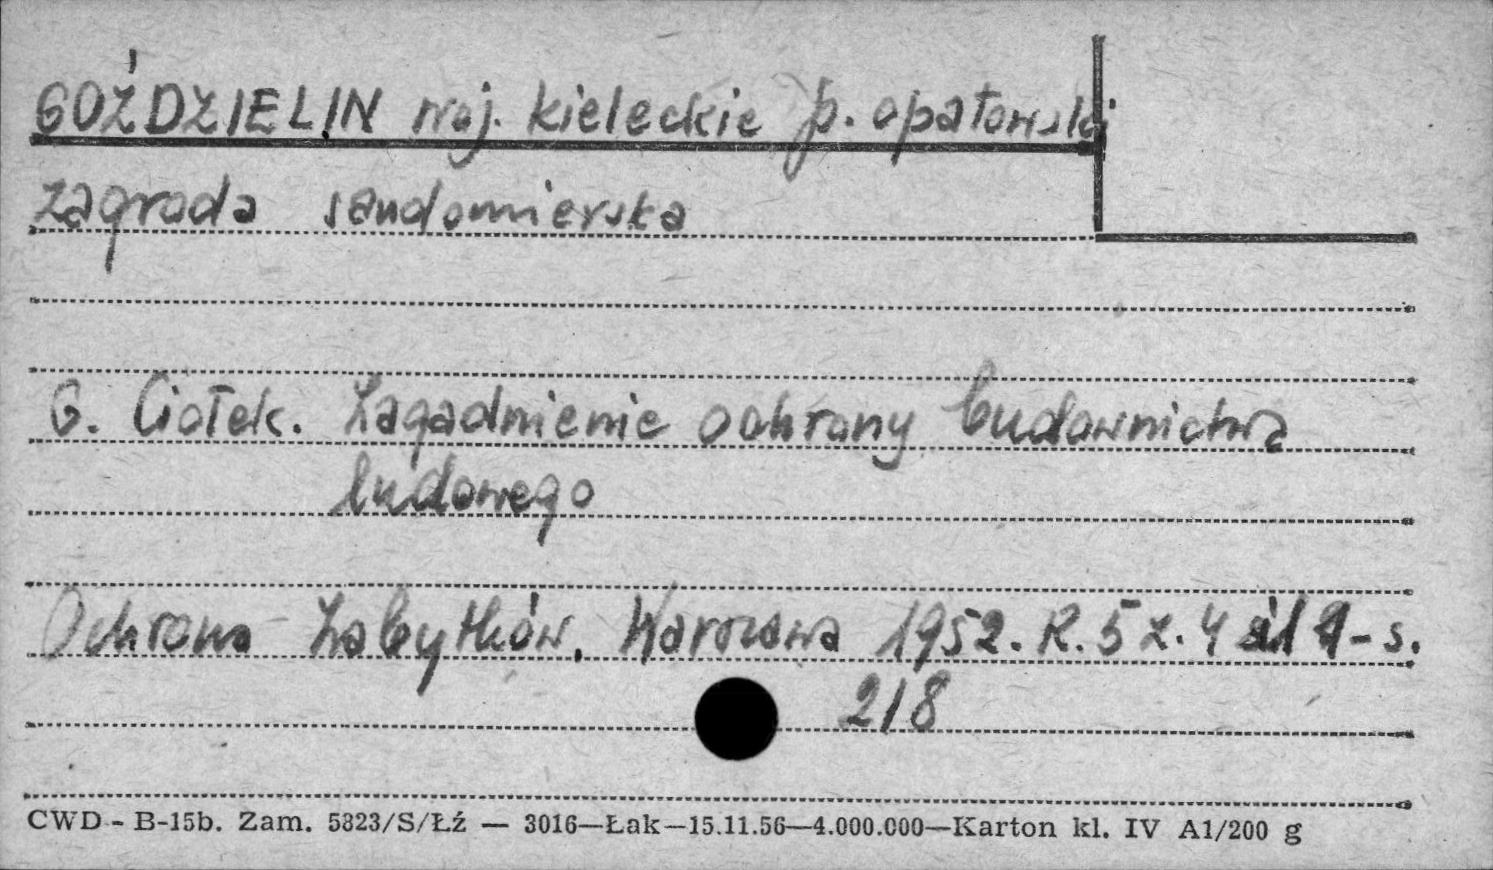 GOŹDZIELIN woj. kieleckie p. opatowski
zagroda sandomierska
G. Ciołek. Zagadnienie ochrony budownictwa
ludowego
Ochrona Zabytków. Warszawa 1952. R. 5 z. 4 il 1 - s.
218
CWD - B-15b. Zam. 5823/S/Łź — 3016—Łak—15.11.56—4.000.000—Karton kl. IV A1/200 g